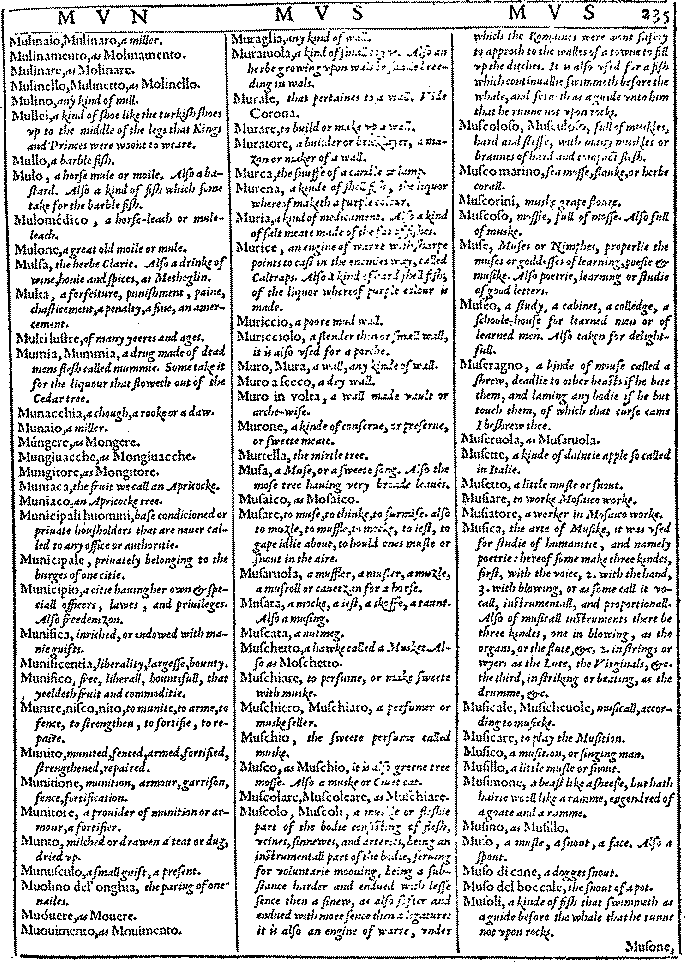 M V N
M V S
M V S
235
Mulinaio, Mulinaro, a miller.
Mulinamento, as Molinamento.
Mulinare, as Molinare.
Mulinello, Mulinetto, as Molinello.
Mulino, any kind of mill.
Mullei, a kind of shoe like the turkish shoes
vp to the middle of the legs that Kings
and Princes were woont to weare.
Mullo, a barble fish.
Mulo, a horse mule or moile. Also a ba-
stard. Also a kind of fish which some
take for the barble fish.
Mulomédico, a horse-leach or mule-
leach.
Mulone, a great old moile or mule.
Mulsa, the herbe Clarie. Also a drinke of
wine, honie and spices, as Metheglin.
Multa, a forfeiture, punishment, paine,
chastisement, a penaltie, a fine, an amer-
cement.
Multilustre, of many yeeres and ages.
Mumia, Mummia, a drug made of dead
mans flesh called mummie. Some take it
for the liqueur that floweth out of the
Cedar tree.
Munacchia, a chough, a rooke or a daw.
Munaio, a miller.
Múngere, as Mongere.
Mungiuacche, as Mongiuacche.
Mungitore, as Mongitore.
Muniaca, the fruit we call an Apricocke.
Muniaco, an Apricocke tree.
Municipali huomini, base conditioned or
priuate housholders that are neuer cal-
led to any office or authoritie.
Municipale, priuately belonging to the
burges of one citie.
Municipio, a citie hauing her own & spe-
ciall officers, lawes, and priuileges.
Also freedenzon.
Munifica, inriched, or indowed with ma-
nie guifts.
Munificentia, liberality, largesse, bounty.
Munifico, free, liberall, bountifull, that
yeeldeth fruit and commoditie.
Munire, nisco, nito, to munite, to arme, to
fence, to strengthen, to fortifie, to re-
paire.
Munito, munited, fenced, armed, fortified,
strengthened, repaired.
Munitione, munition, armour, garrison,
fence, fortification.
Munitore, a prouider of munition or ar-
mour, a fortifier.
Munto, milched or drawen a teat or dug,
dried vp.
Munusculo, a small guift, a present.
Muolino del' onghia, the paring of one
nailes.
Muóuere, as Mouere.
Muouimento, as Mouimento.
Muraglia, any kind of wall.
Muraiuola, a kind of small Also an
herbe growing vpon wals
ding in wals.
Murale, that pertaines to a wall. Vide
Corona.
Murare, to build or make vp a wall.
Muratore, a builder or bricklayer, a ma-
zon or maker of a wall.
Murca, the snuffe of a candle or lamp.
Murena, a kinde of shell fish, the liquor
whereof maketh a purple colour.
Muria, a kind of medicament. Also a kind
of salt meate made of the fat of fishes.
Murice, an engine of warre with sharpe
points to cast in the enemies way, called
Caltraps. Also a kind of hard shell fish,
of the liquor whereof purple colour is
made.
Muriccio, a poore mud wall.
Muricciolo, a slender thin or small wall,
it is also vsed for a porche.
Muro, Mura, a wall, any kinde of wall.
Muro a secco, a dry wall.
Muro in volta, a wall made vault or
arche-wise.
Murone, a kinde of conserue, or preserue,
or sweete meate.
Murtella, the mirtle tree.
Musa, a Muse, or a sweete song. Also the
mose tree hauing very broade leaues.
Musaico, as Mosaico.
Musare, to muse, to thinke, to surmise. also
to mozle, to muffle, to mocke, to iest, to
gape idlie about, to hould ones musle or
snout in the aire.
Musaruola, a muffler, a musler, a muzle,
a musroll or cauetzan for a horse.
Musata, a mocke, a iest, a skoffe, a taunt.
Also a musing.
Muscata, a nutmeg.
Muschetto, a hawke called a Musket. Al-
so as Moschetto.
Muschiare, to perfume, or make sweete
with muske.
Muschiero, Muschiaro, a perfumer or
muske seller.
Muschio, the sweete perfume called
muske.
Musco, as Muschio, it is also greene tree
mosse. Also a muske or Ciuet cat.
Muscolare, Muscoleare, as Muschiare.
Muscolo, Muscoli, a muscle or fleshie
part of the bodie consisting of flesh,
veines, sinnewes, and arteries, being an
instrumentall part of the bodie, seruing
for voluntarie moouing, being a sub-
stance harder and endued with lesse
sence then a sinew, as also softer and
endued with more sence then a ligature:
it is also an engine of warre, vnder
which the Romanes were wont safely
to approch to the walles of a towne to fill
vp the ditches. It is also vsed for a fish
which continuallie swimmeth before the
whale, and serueth as a guide vnto him
that he runne not vpon rocks.
Muscoloso, Musculoso, full of muskles,
hard and stiffe, with many muskles or
braunes of hard and compact flesh.
Musco marino, sea mosse, slauke, or herbe
corall.
Muscorini, muske grape flowre.
Muscoso, mossie, full of mosse. Also full
of muske.
Muse, Muses or Nimphes, properlie the
muses or goddesses of learning, poesie &
musike. Also poetrie, learning or studie
of good letters.
Museo, a study, a cabinet, a colledge, a
schoole-house for learned men or of
learned men. Also taken for delight-
full.
Museragno, a kinde of mouse called a
shrew, deadlie to other beasts if he bite
them, and laming any bodie if he but
touch them, of which that curse came
I beshrew thee.
Museruola, as Musaruola.
Musette, a kinde of daintie apple so called
in Italie.
Musetto, a little musle or snout.
Musiare, to worke Mosaico worke.
Musiatore, a worker in Mosaico worke.
Musica, the arte of Musike, it was vsed
for studie of humanitie, and namely
poetrie: hereof some make three kindes,
first, with the voice, 2. with the hand,
3. with blowing, or as some call it vo-
call, instrumentall, and proportionall.
Also of musicall instruments there be
three kindes, one in blowing, as the
organs, or the flute, &c. 2. in strings or
wyers as the Lute, the Virginals, &c.
the third, in striking or beating, as the
drumme, &c.
Musicale, Musicheuole, musicall, accor-
ding to musicke.
Musicare, to play the Musition.
Musico, a musition, or singing man.
Musillo, a little musle or snout.
Musimone, a beast like a sheepe, but hath
haire wooll like a ramme, engendred of
a goate and a ramme.
Musino, as Musillo.
Muso, a musle, a snout, a face. Also a
spout.
Muso di cane, a dogges snout.
Muso del boccale, the snout of a pot.
Musoli, a kinde of fish that swimmeth as
a guide before the whale that he runne
not vpon rocks.
Musone,